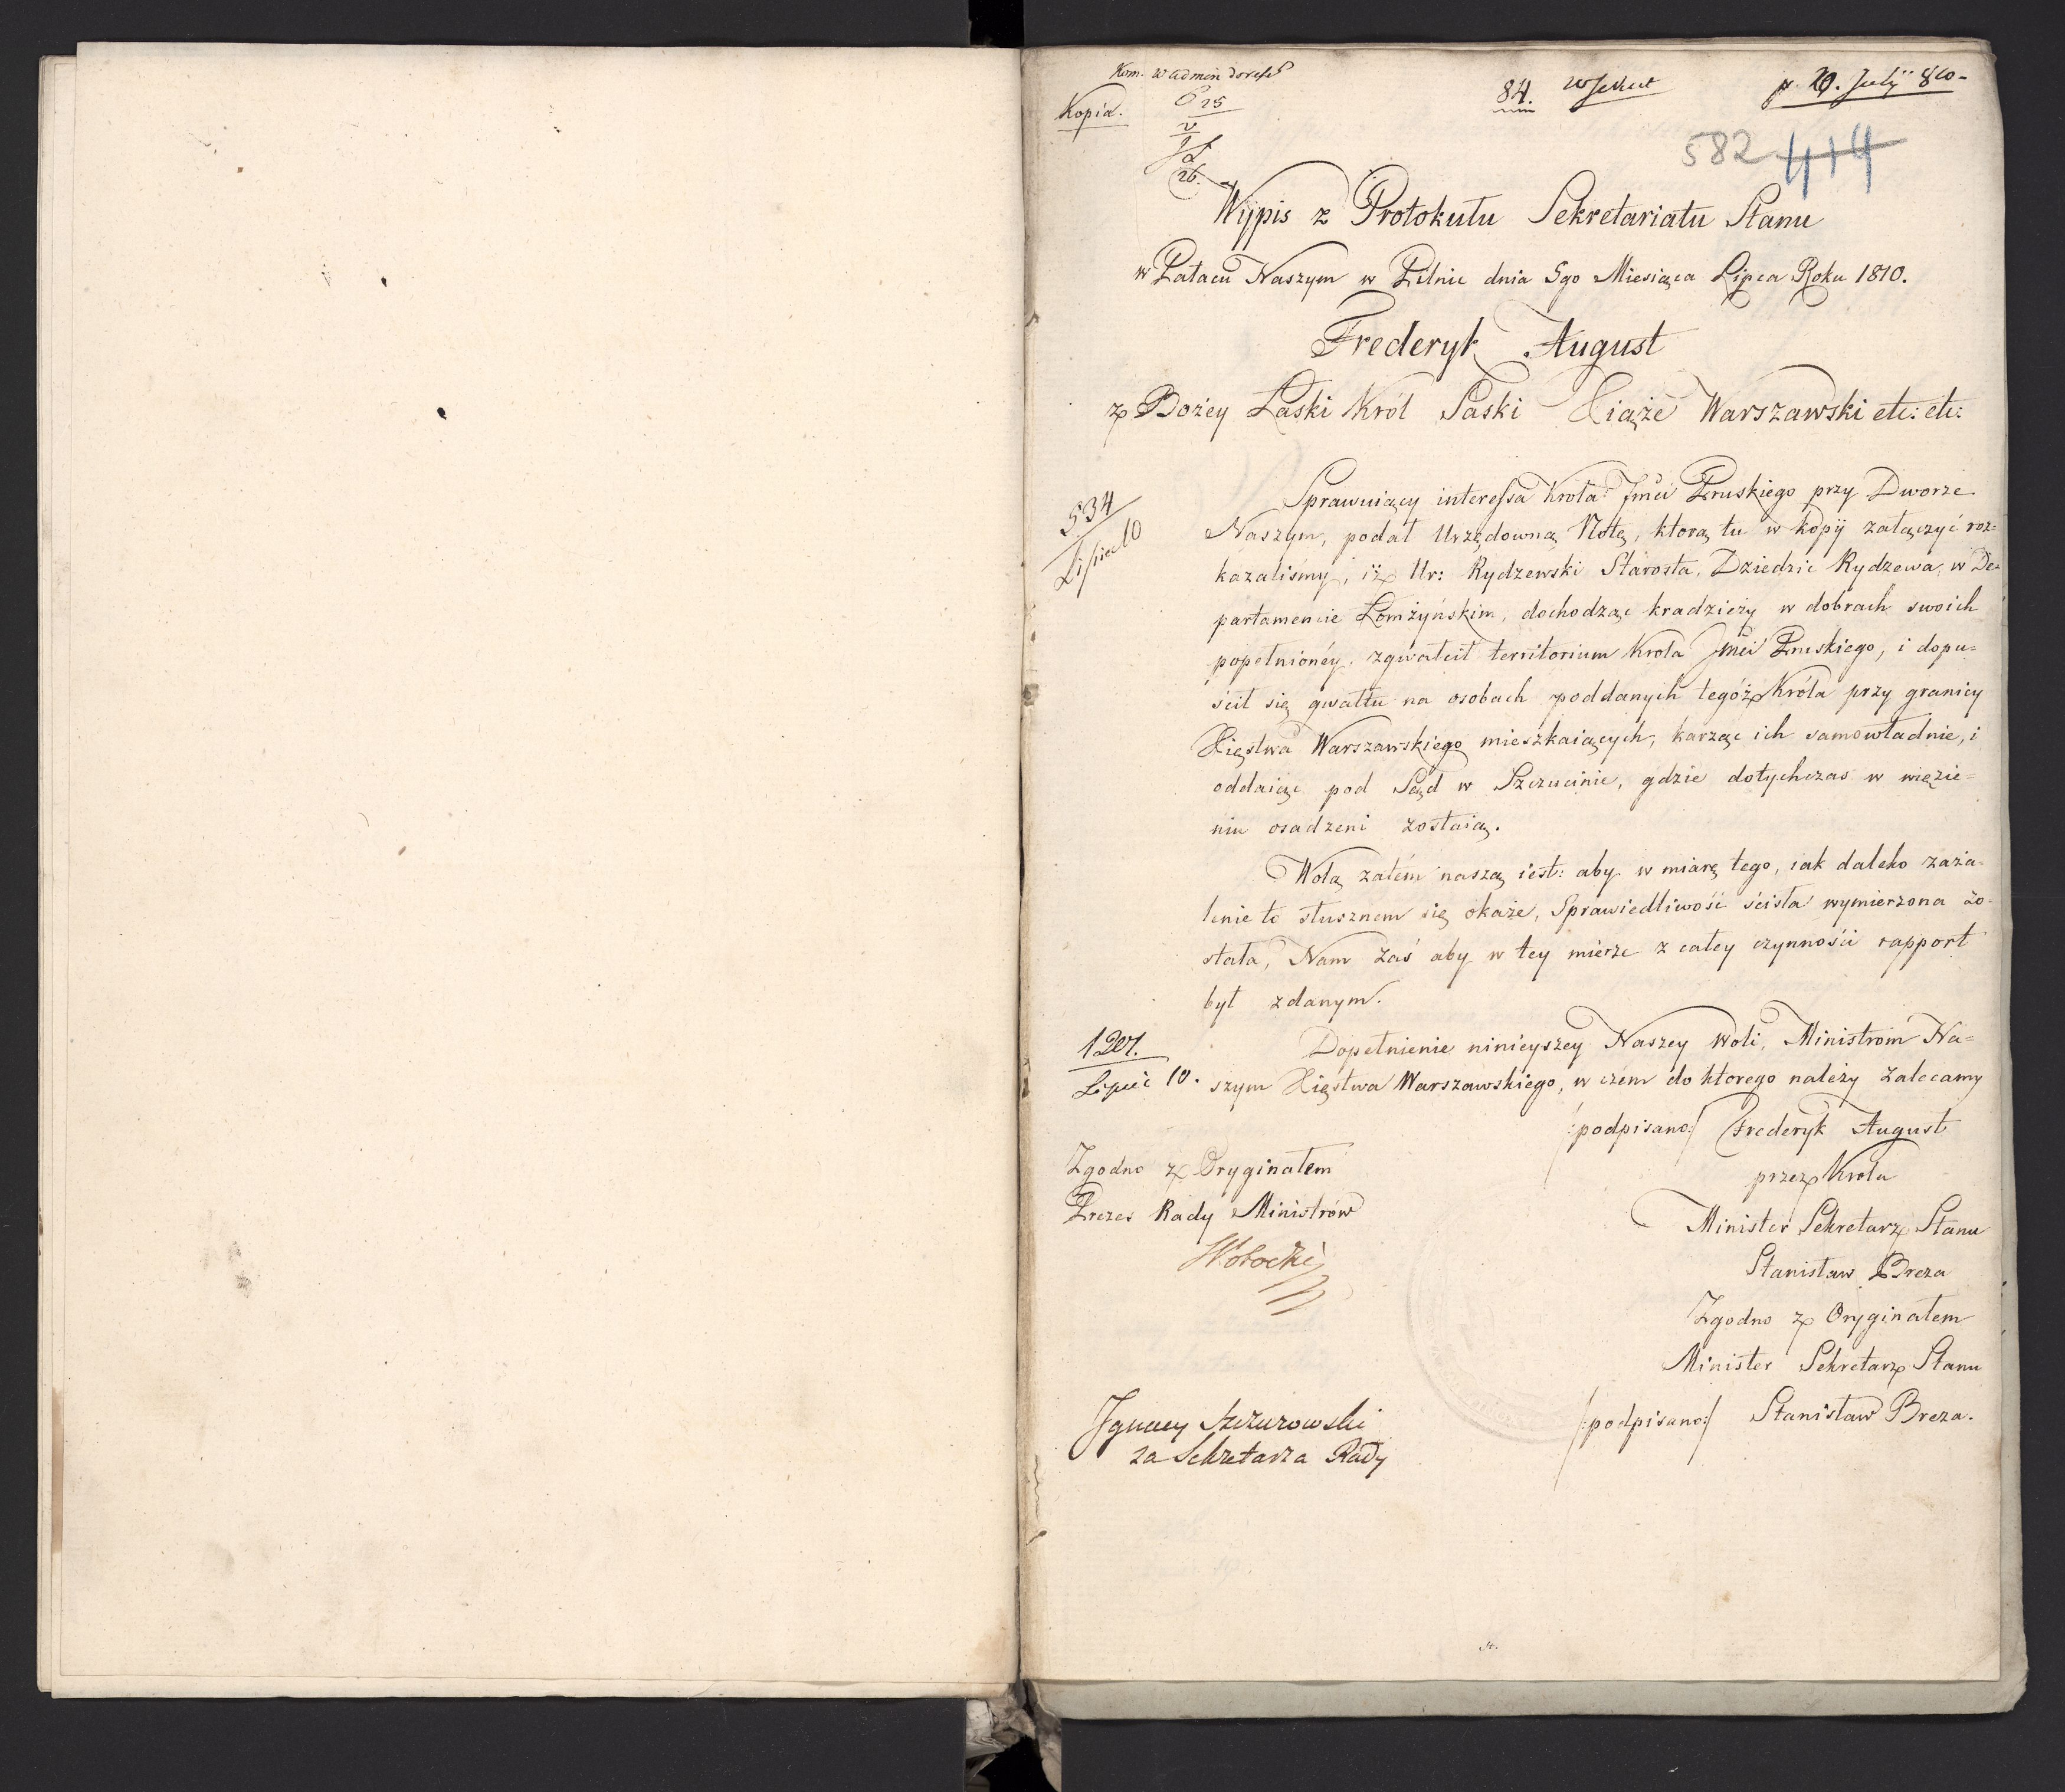 Kopia.
84.
p. 20. Julÿ 810-
582 414
Wypis z Protokułu Sekretariatu Stanu
w Pałacu Naszym w Pilnic dnia 5go Miesiąca Lipca Roku 1810.
Frederyk August
z Bożey Łaski Król Saski Xiąże Warszawski etc: etc:
534
Lipiec 10
Sprawuiący interessa Króla Jmci Pruskiego przy Dworze
Naszym, podał Urzędowną Notę, którą tu w kopij załączyć roz=
kazaliśmy, iż Ur: Rydzewski Starosta, Dziedzic Rydzewa, w De=
partamencie Łomżyńskim, dochodząc kradzieży w dobrach swoich
popełnionéy, zgwałcił territorium Króla Jmci Pruskiego, i dopu=
ścił się gwałtu na osobach poddanych tegóż Króla przy granicy
Xięstwa Warszawskiego mieszkaiących, karząc ich samowładnie, i
oddaiąc pod Sąd w Szczucinie, gdzie dotychczas w więzie=
niu osadzeni zostaią.
Wolą zatém naszą iest: aby w miarę tego, iak daleko zaża=
lenie to słusznem się okaże, Sprawiedliwość ścisła wymierzona zo=
stała, Nam zaś aby w tey mierze z całey czynności rapport
był zdanym.
1207.
Lipiec 10.
Dopełnienie ninieyszey Naszey Woli, Ministrom Na=
szym Xięstwa Warszawskiego, w czém do którego należy zalecamy
/:podpisano:/ Frederyk August
przez Króla
Minister Sekretarz Stanu
Stanisław Breza
Zgodno z Oryginałem
Minister Sekretarz Stanu
/:podpisano:/ Stanisław Breza.
Zgodno z Oryginałem
Prezes Rady Ministrów
Ignacy Szczurowski
za Sekretarza Rady